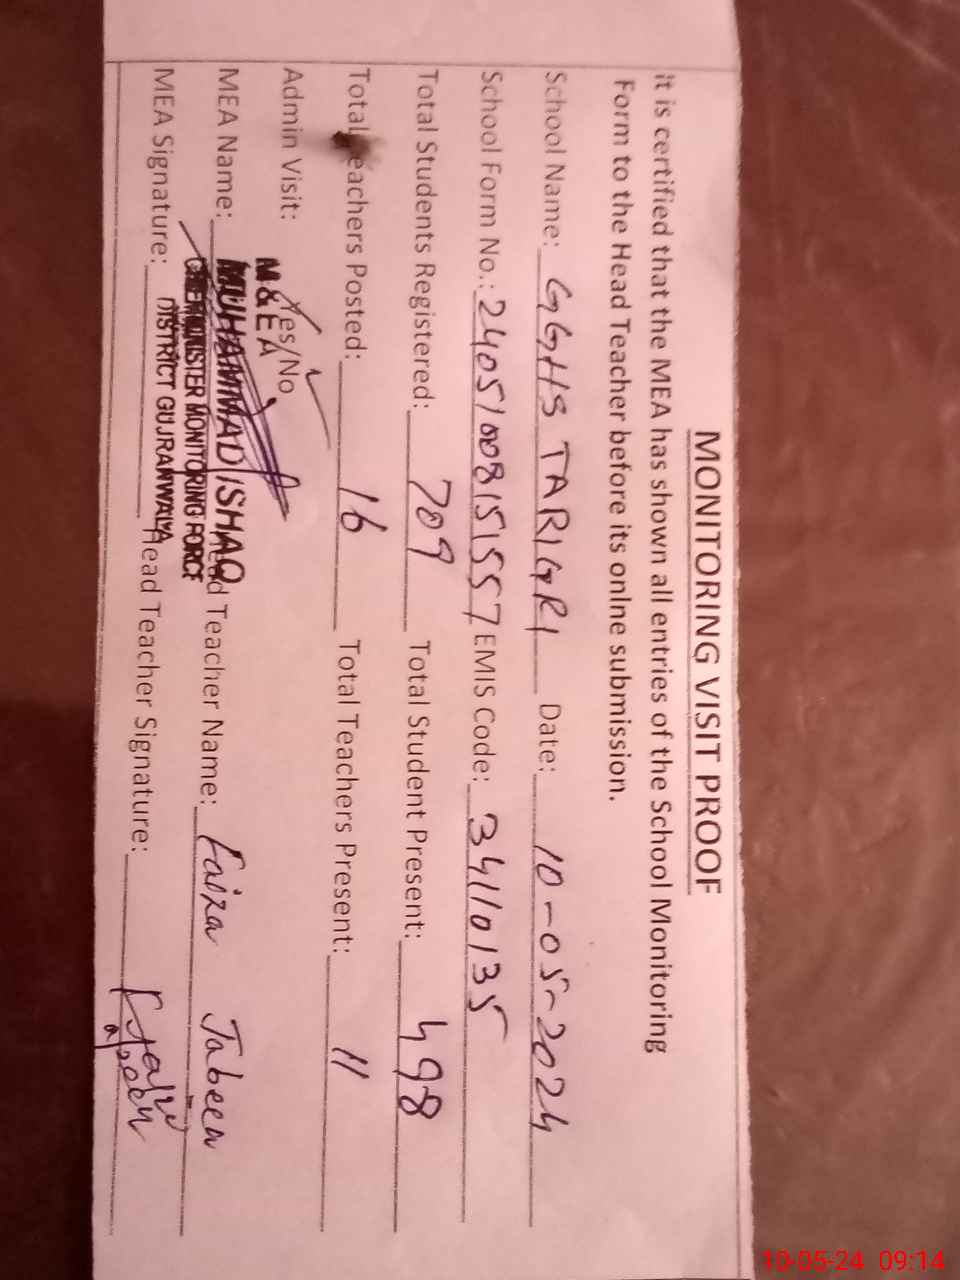 MONITORING VISIT PROOF
it is certified that the MEA has shown all entries of the School Monitoring
Form to the Head Teacher before its onlne submission.
School Name: GGHS TARIGRI Date: 10-05-2024
School Form No.: 24051008151557 EMIS Code: 34110135
Total Students Registered: 709 Total Student Present: 498
Total Teachers Posted: 16 Total Teachers Present: 11
Admin Visit: Yes/No
M & E A
MEA Name: MUHAMMAD ISHAQ Head Teacher Name: Faiza Jabeen
CHIEF MINISTER MONITORING FORCE
MEA Signature: DISTRICT GUJRANWALA Head Teacher Signature:
10-05-24 09:14